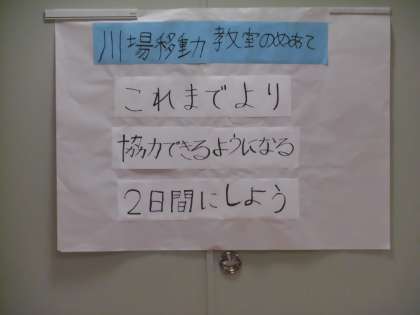 川場移動教室のめあて
これまでより
協力できるようになる
2日間にしよう